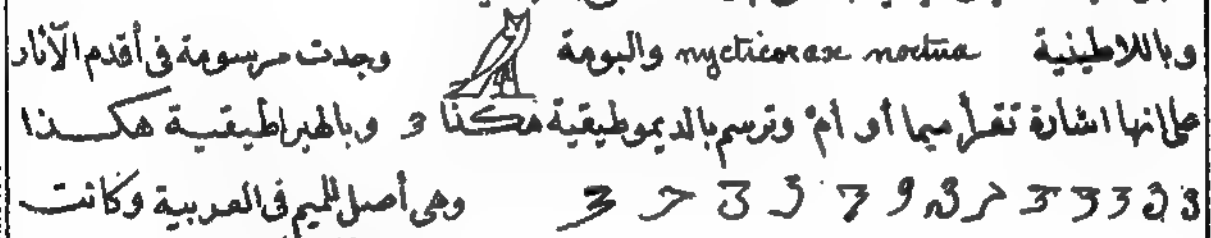 وباللاطينية nycticorax noctua والبومة وجدت مرسومة فى أقدم الآثار
على انها اشارة تقرأ ميما أو أم وترسم بالديموطيقية هكذا 3 وبالهيراطيقية هكـــذا
وهى أصل للميم فى العربية وكانت